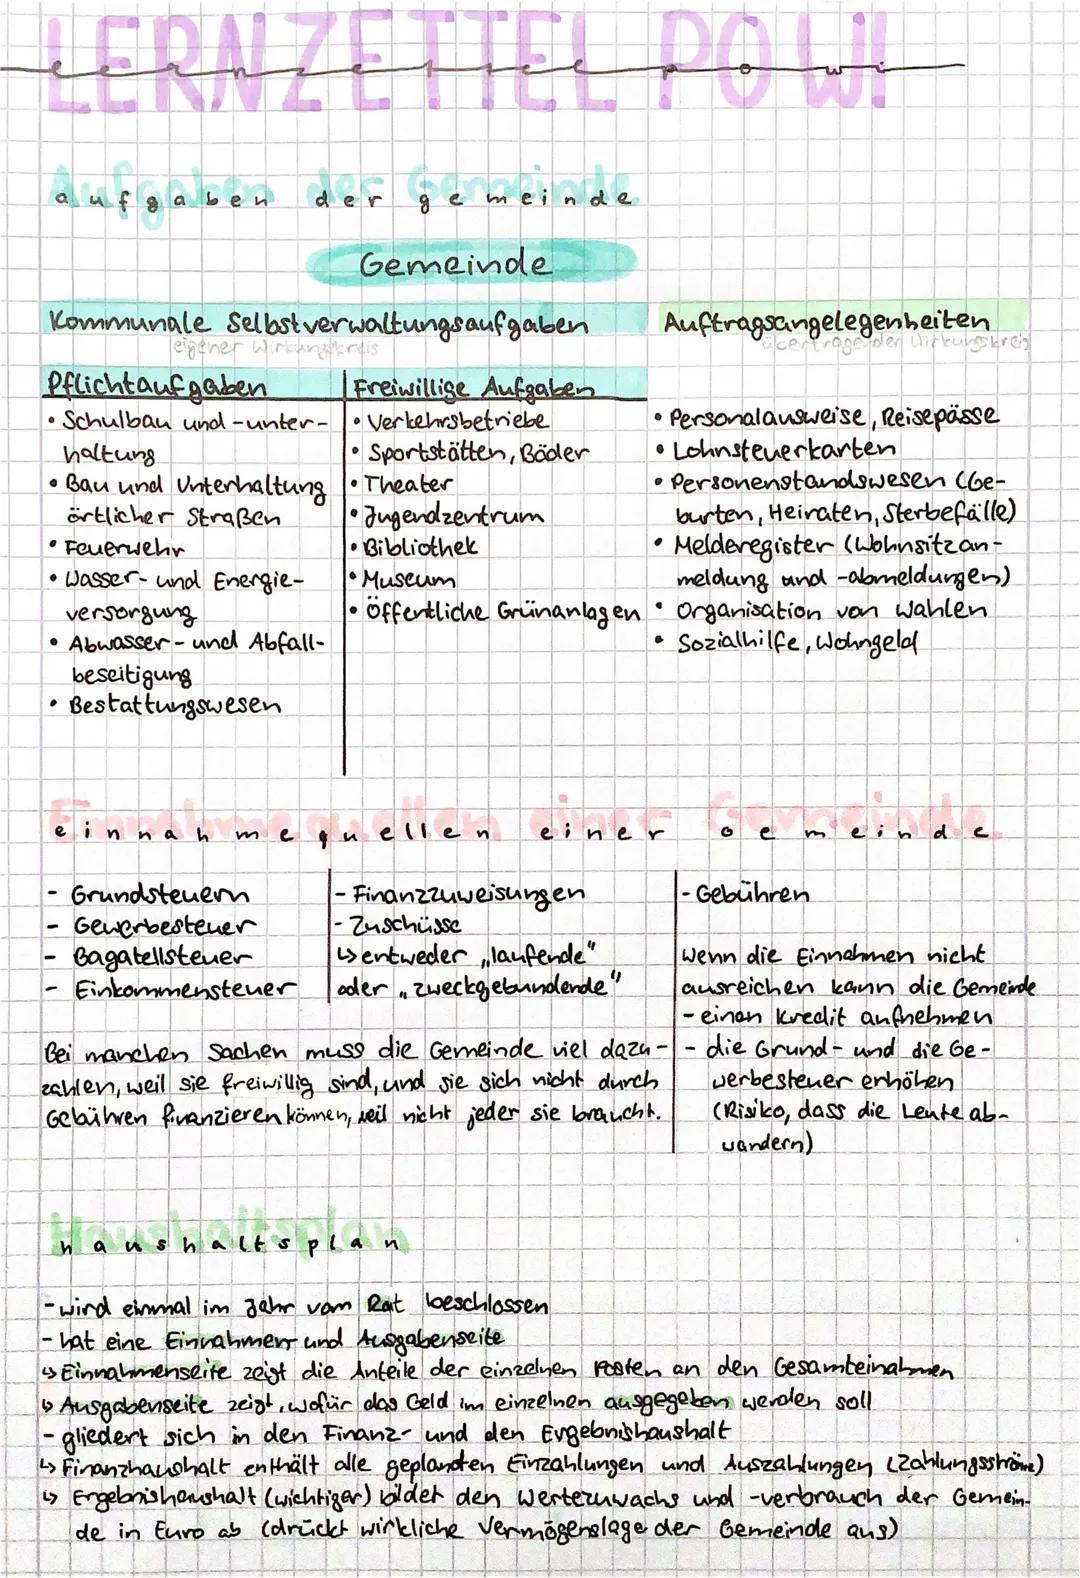 LERNZETTEL POWI
lernzettel powi
Aufgaben der Gemeinde
aufgaben der gemeinde
Gemeinde
Kommunale Selbstverwaltungsaufgaben
eigener Wirkungskreis
Auftragsangelegenheiten
übertragender Wirkungskreis
Pflichtaufgaben
• Schulbau und -unter-
haltung
• Bau und Unterhaltung
örtlicher Straßen
• Feuerwehr
• Wasser- und Energie-
versorgung
• Abwasser- und Abfall-
beseitigung
• Bestattungswesen
Freiwillige Aufgaben
• Verkehrsbetriebe
• Sportstätten, Bäder
• Theater
• Jugendzentrum
• Bibliothek
• Museum
• Öffentliche Grünanlagen
• Personalausweise, Reisepässe
• Lohnsteuerkarten
• Personenstandswesen (Ge-
burten, Heiraten, Sterbefälle)
• Melderegister (Wohnsitzan-
meldung und -abmeldungen)
• Organisation von Wahlen
• Sozialhilfe, Wohngeld
Einnahmequellen einer Gemeinde
einnahmequellen einer gemeinde
- Grundsteuern
- Gewerbesteuer
- Bagatellsteuer
- Einkommensteuer
- Finanzzuweisungen
- Zuschüsse
↳ entweder „laufende"
oder „zweckgebundende"
Bei manchen Sachen muss die Gemeinde viel dazu-
zahlen, weil sie freiwillig sind, und sie sich nicht durch
Gebühren finanzieren können, weil nicht jeder sie braucht.
- Gebühren
Wenn die Einnahmen nicht
ausreichen kann die Gemeinde
- einen Kredit aufnehmen
- die Grund- und die Ge-
werbesteuer erhöhen
(Risiko, dass die Leute ab-
wandern)
Haushaltsplan
haushaltsplan
- wird einmal im Jahr vom Rat beschlossen
- hat eine Einnahmen- und Ausgabenseite
↳ Einnahmenseite zeigt die Anteile der einzelnen Posten an den Gesamteinahmen
↳ Ausgabenseite zeigt, wofür das Geld im einzelnen ausgegeben werden soll
- gliedert sich in den Finanz- und den Ergebnishaushalt
↳ Finanzhaushalt enthält alle geplanten Einzahlungen und Auszahlungen (Zahlungsströme)
↳ Ergebnishaushalt (wichtiger) bildet den Wertezuwachs und -verbrauch der Gemein-
de in Euro ab (drückt wirkliche Vermögenslage der Gemeinde aus)